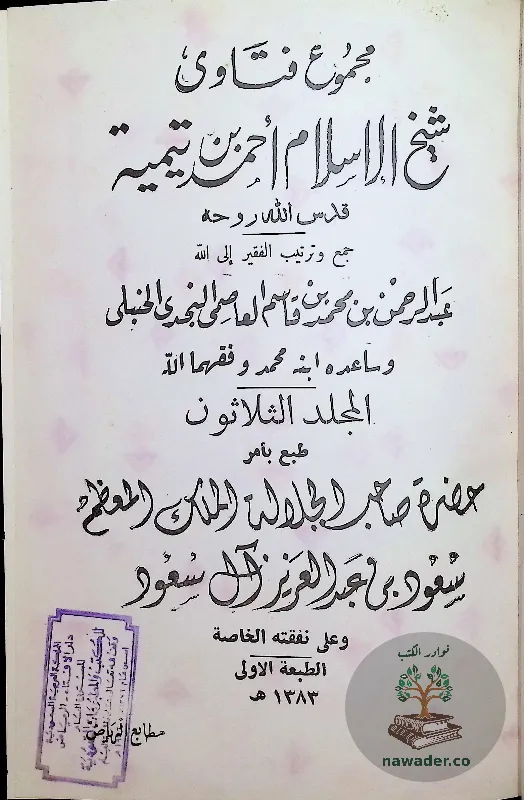 مجموع فتاوى
شيخ الإسلام أحمد بن تيمية
قدس الله روحه
جمع وترتيب الفقير إلى الله
عبد الرحمن بن محمد بن قاسم العاصمي النجدي الحنبلي
وساعده ابنه محمد وفقهما الله
المجلد الثلاثون
طبع بأمر
حضرة صاحب الجلالة الملك المعظم
سعود بن عبد العزيز آل سعود
وعلى نفقته الخاصة
الطبعة الاولى
١٣٨٣ هـ
مطابع الرياض
نوادر الكتب
nawader.co